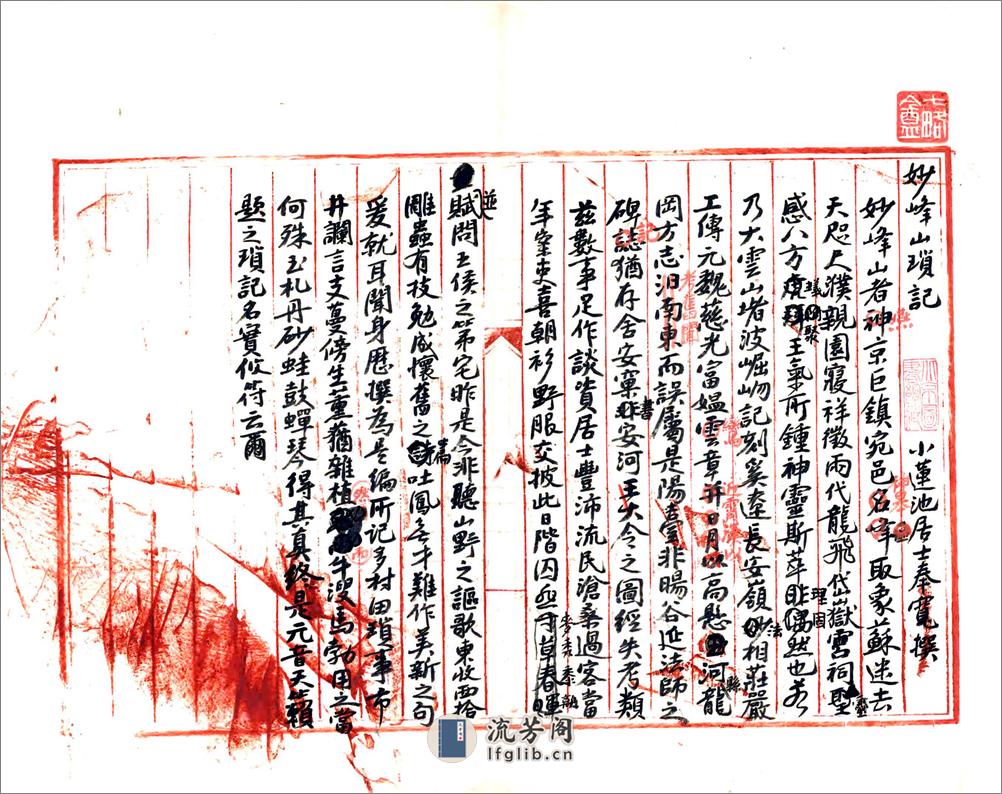 妙峰山瑣記 小蓮池居士奉寬撰
妙峰山者神京巨鎮宛邑名峰取象蘇迷去
天咫尺濮親園寢祥徵兩代龍飛岱獄靈祠聖
感八方蟻聚王氣所鍾神靈斯萃理固然也若
乃大雲山堵波崛岉記刻奚達長安嶺法相莊嚴
工傳元魏慈光富媼雲章并日月以高懸河龍
岡方志汨南東而誤屬是陽臺非暘谷近法師之
碑誌猶存舍安窠書非安河王大令之圖經失考類
茲數事足作談資居士豐沛流民滄桑過客當
年案吏喜朝衫野服交披此日階囚
賦問王侯之第宅昨是今非聽山野之謳歌東收西拾
雕蟲有技勉成懷舊之篇吐鳳無才難作美新之句
爰就耳聞身歷撰為是編所記多村田瑣事市
井讕言支蔓傍生薰蕕雜植牛溲馬勃用之當
何殊玉札丹砂蛙鼓蟬琴得其真終是元音天籟
題之瑣記名實攸符云爾
流芳阁
lfglib.cn